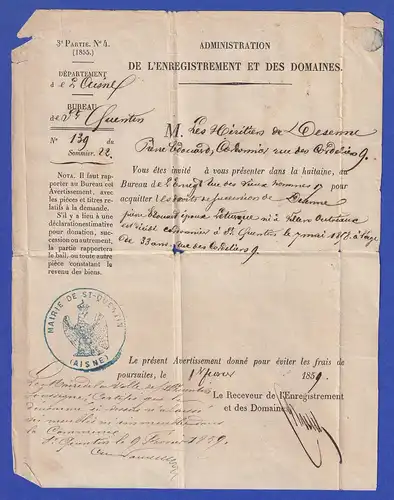 3e PARTIE. No 4.
(1855.)
DÉPARTEMENT
de l'Aisne
BUREAU
de St Quentin
No 139 du
Sommier 22
NOTA. Il faut rap-
porter au Bureau cet
Avertissement, avec
les pièces et titres re-
latifs à la demande.
S'il y a lieu à une
déclaration estimative
pour donation, succes-
cion ou autrement,
la partie rapportera
le bail, ou toute autre
pièce constatant le
revenu des biens.
ADMINISTRATION
DE L'ENREGISTREMENT ET DES DOMAINES.
M. Les Héritiers de Desenne
Pierre Edouard, rue des Cordeliers 9.
Vous êtes invité à vous présenter dans la huitaine, au
Bureau de l'Enregt rue des Vieux hommes pour
acquitter les droits de succession de Desenne
pierre Edouard époux né à
est décédé à St Quentin le 7 mai 1858 à l'âge
de 33 ans rue des Cordeliers 9.
MAIRIE DE ST-QUENTIN
(AISNE)
Le présent Avertissement donné pour éviter les frais de
poursuites, le 1859.
Le Receveur de l'Enregistrement
et des Domaines
Le Maire de la Ville de St Quentin
soussigné, Certifie que
la Commune
St Quentin le 9 février 1859.